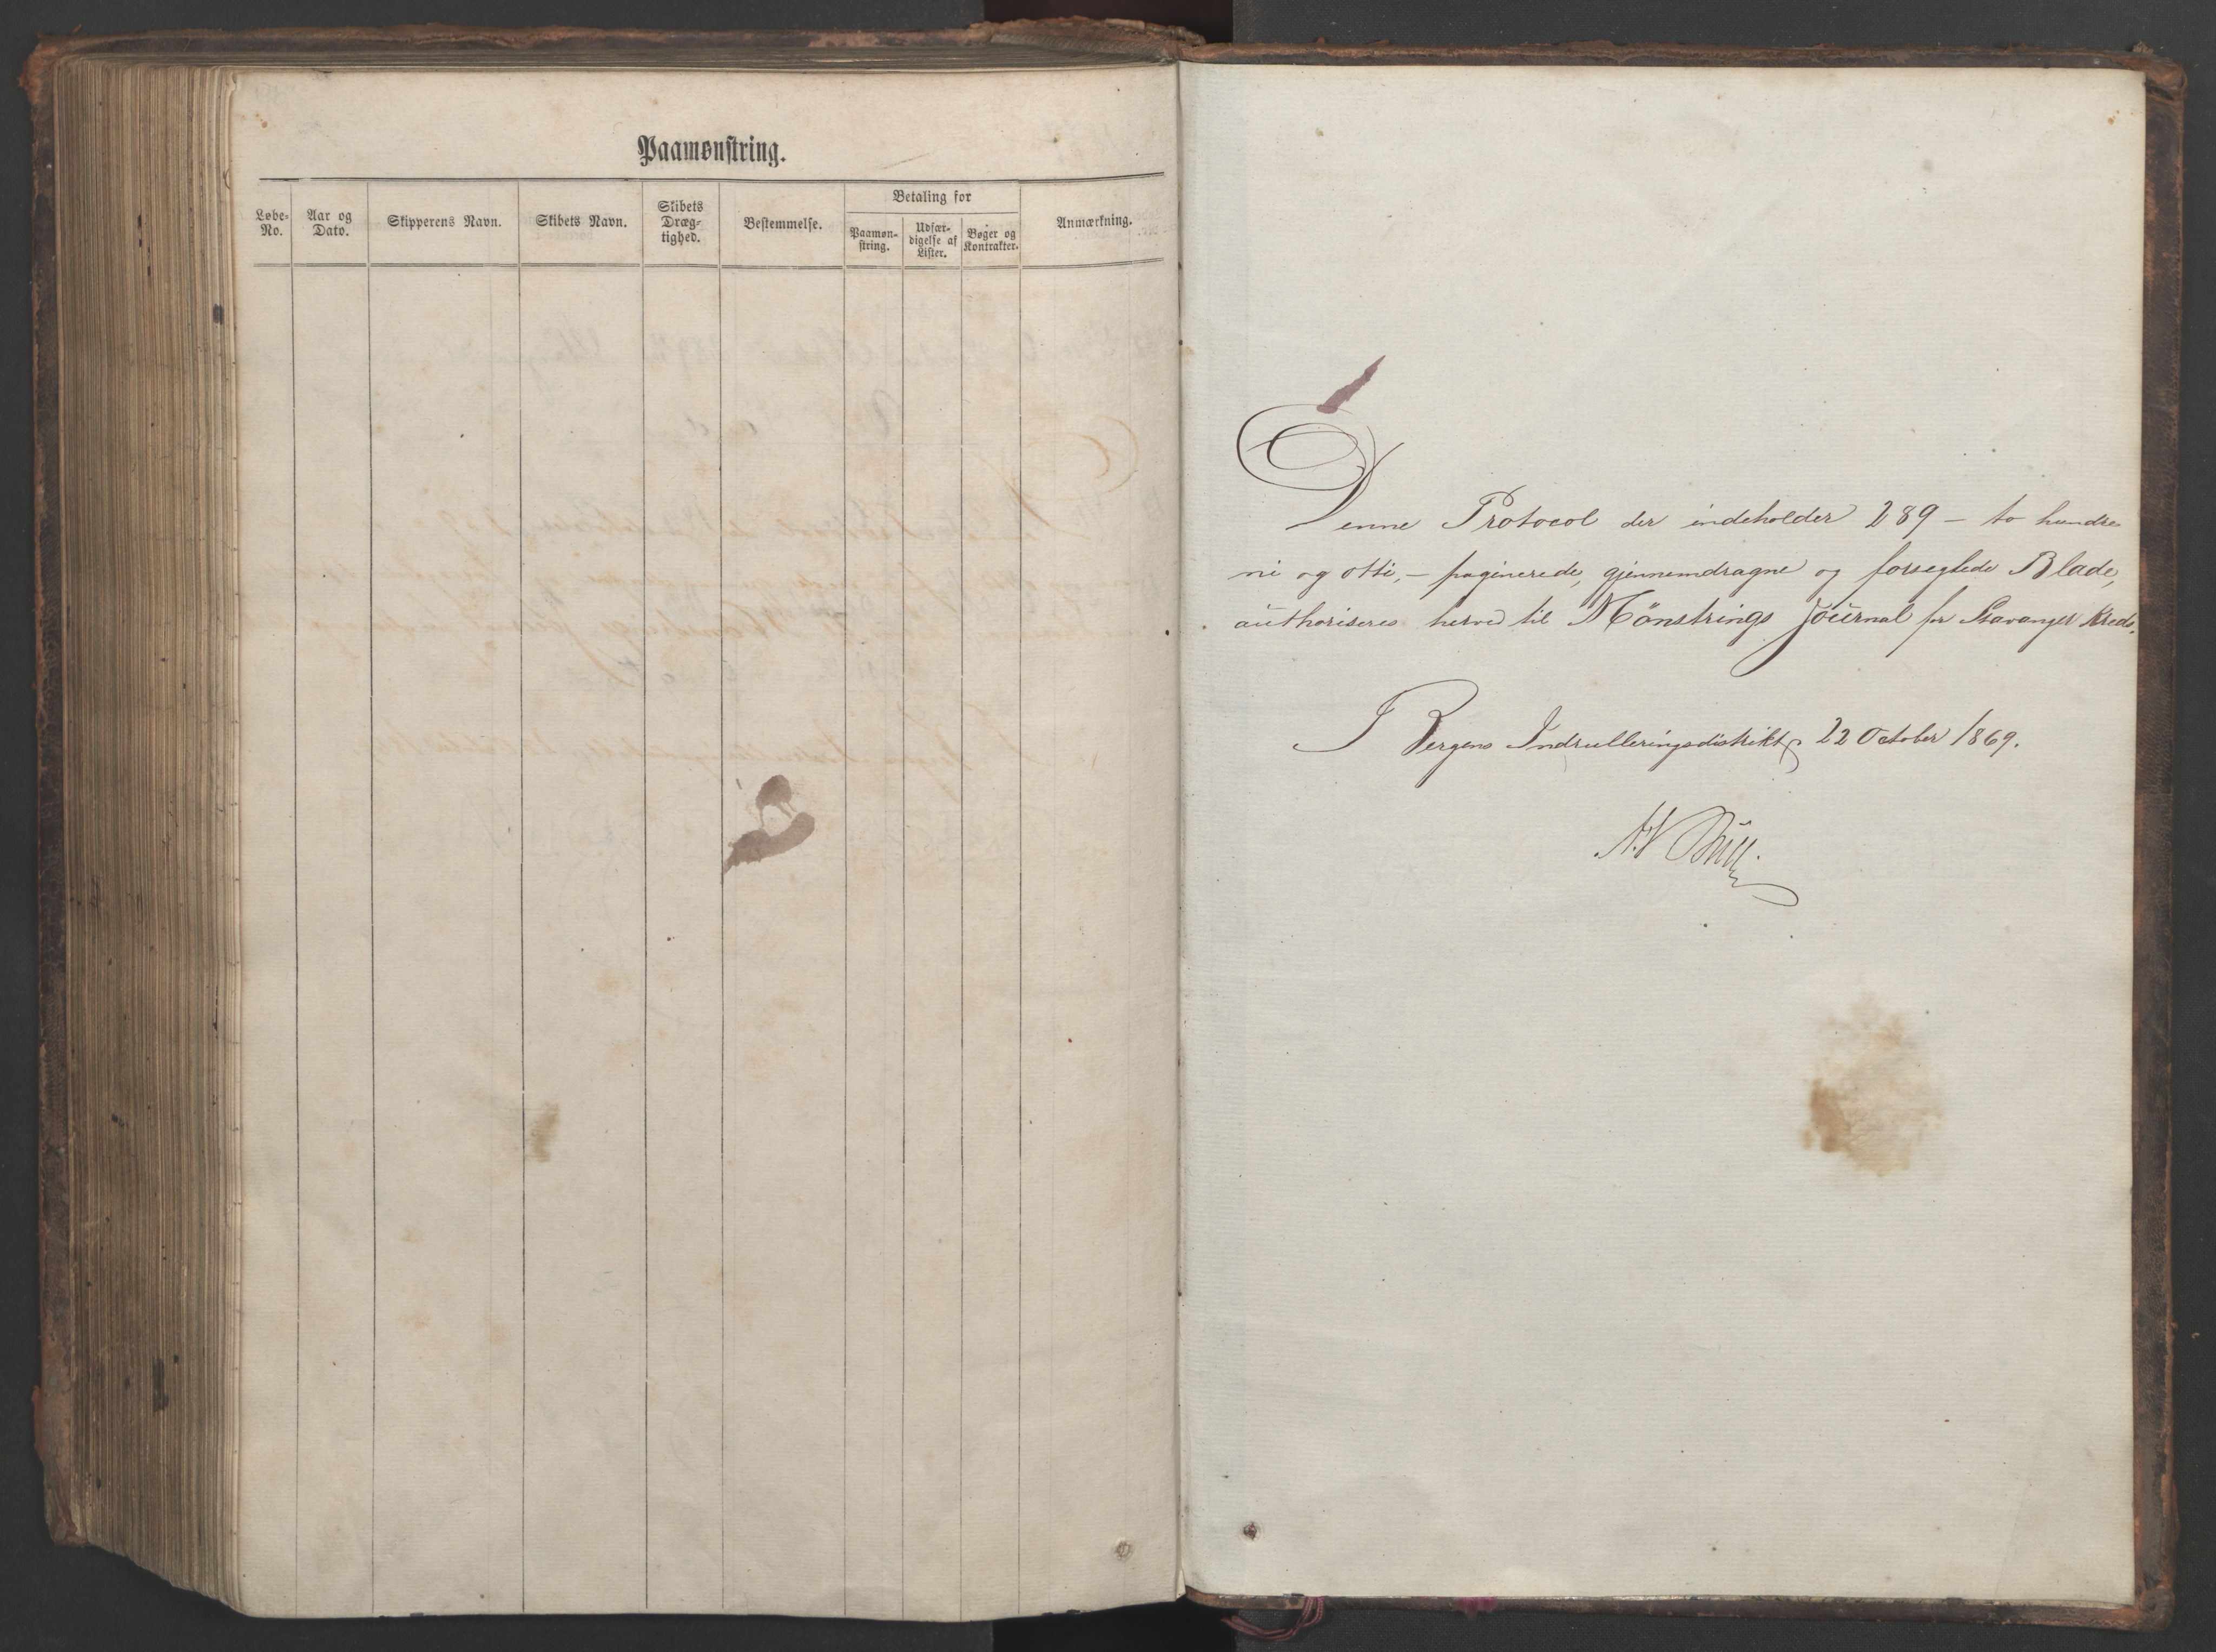 Paamønstring.
Løbe-
No.
Aar og
Dato.
Skipperens Navn.
Skibets Navn.
Skibets
Dræg-
tighed.
Bestemmelse.
Betaling for
Paamøn-
string.
Udfær-
digelse af
Lister.
Bøger og
Kontrakter.
Anmærkning.
Denne Protocol der indeholder 289 — to hundre
ni og otti, — paginerede, gjennemdragne og forseglede Blade,
authoriseres herved til Mönstrings Journal for Stavanger Kreds.
I Bergens Indrulleringsdistrikt 22 October 1869.